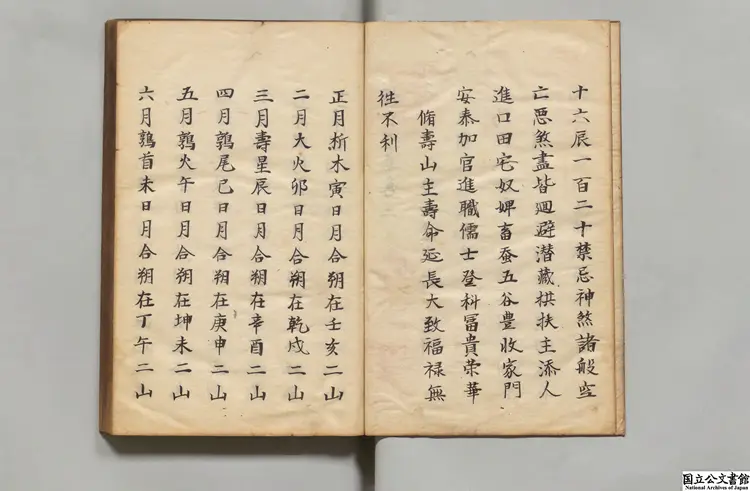 十六辰一百二十禁忌神煞諸般空
亡悪煞盡皆廻避潜藏拱扶主添人
進口田宅奴婢畜蚕五谷豊收家門
安泰加官進職儒士登科冨貴荣華
脩壽山主壽命延長大致福禄無
徃不利
正月析木寅日月合朔在壬亥二山
二月大火卯日月合朔在乾戍二山
三月壽星辰日月合朔在辛酉二山
四月鶉尾巳日月合朔在庚申二山
五月鶉火午日月合朔在坤未二山
六月鶉首未日月合朔在丁午二山
国立公文書館
National Archives of Japan